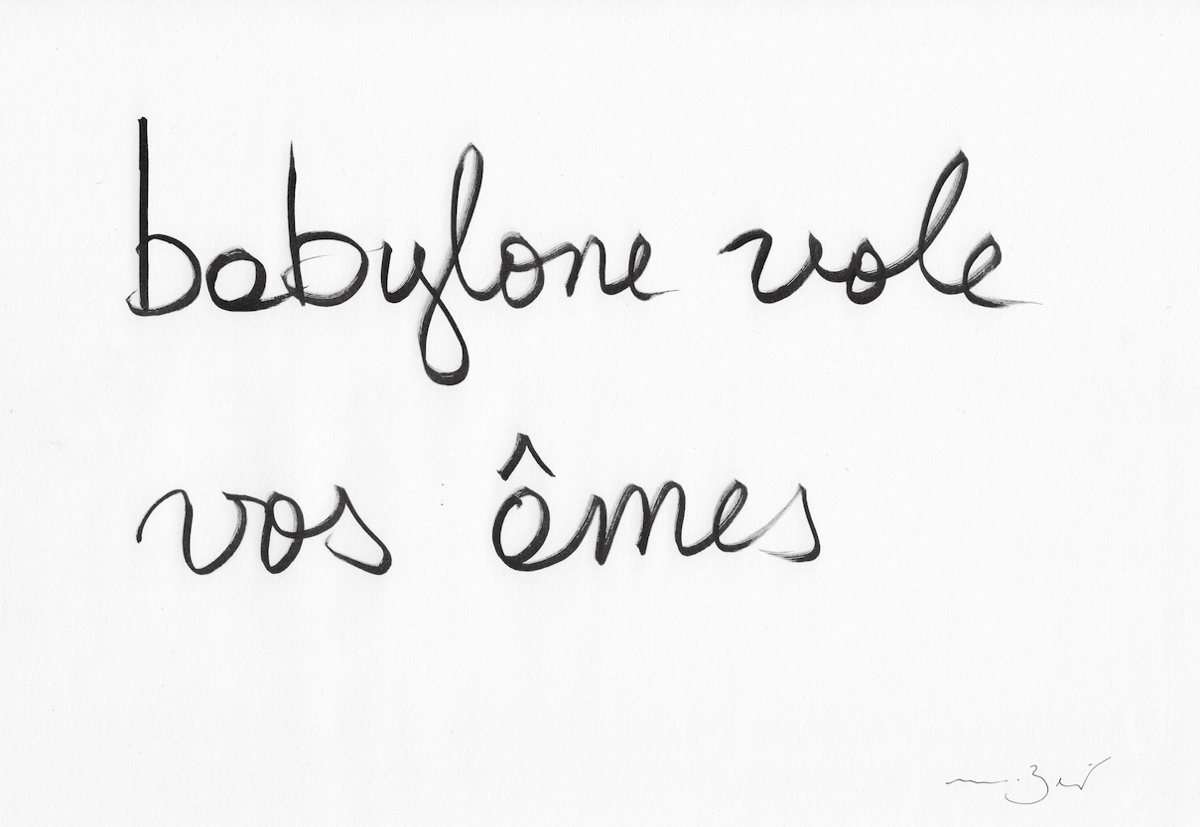 babylone vole
vos âmes